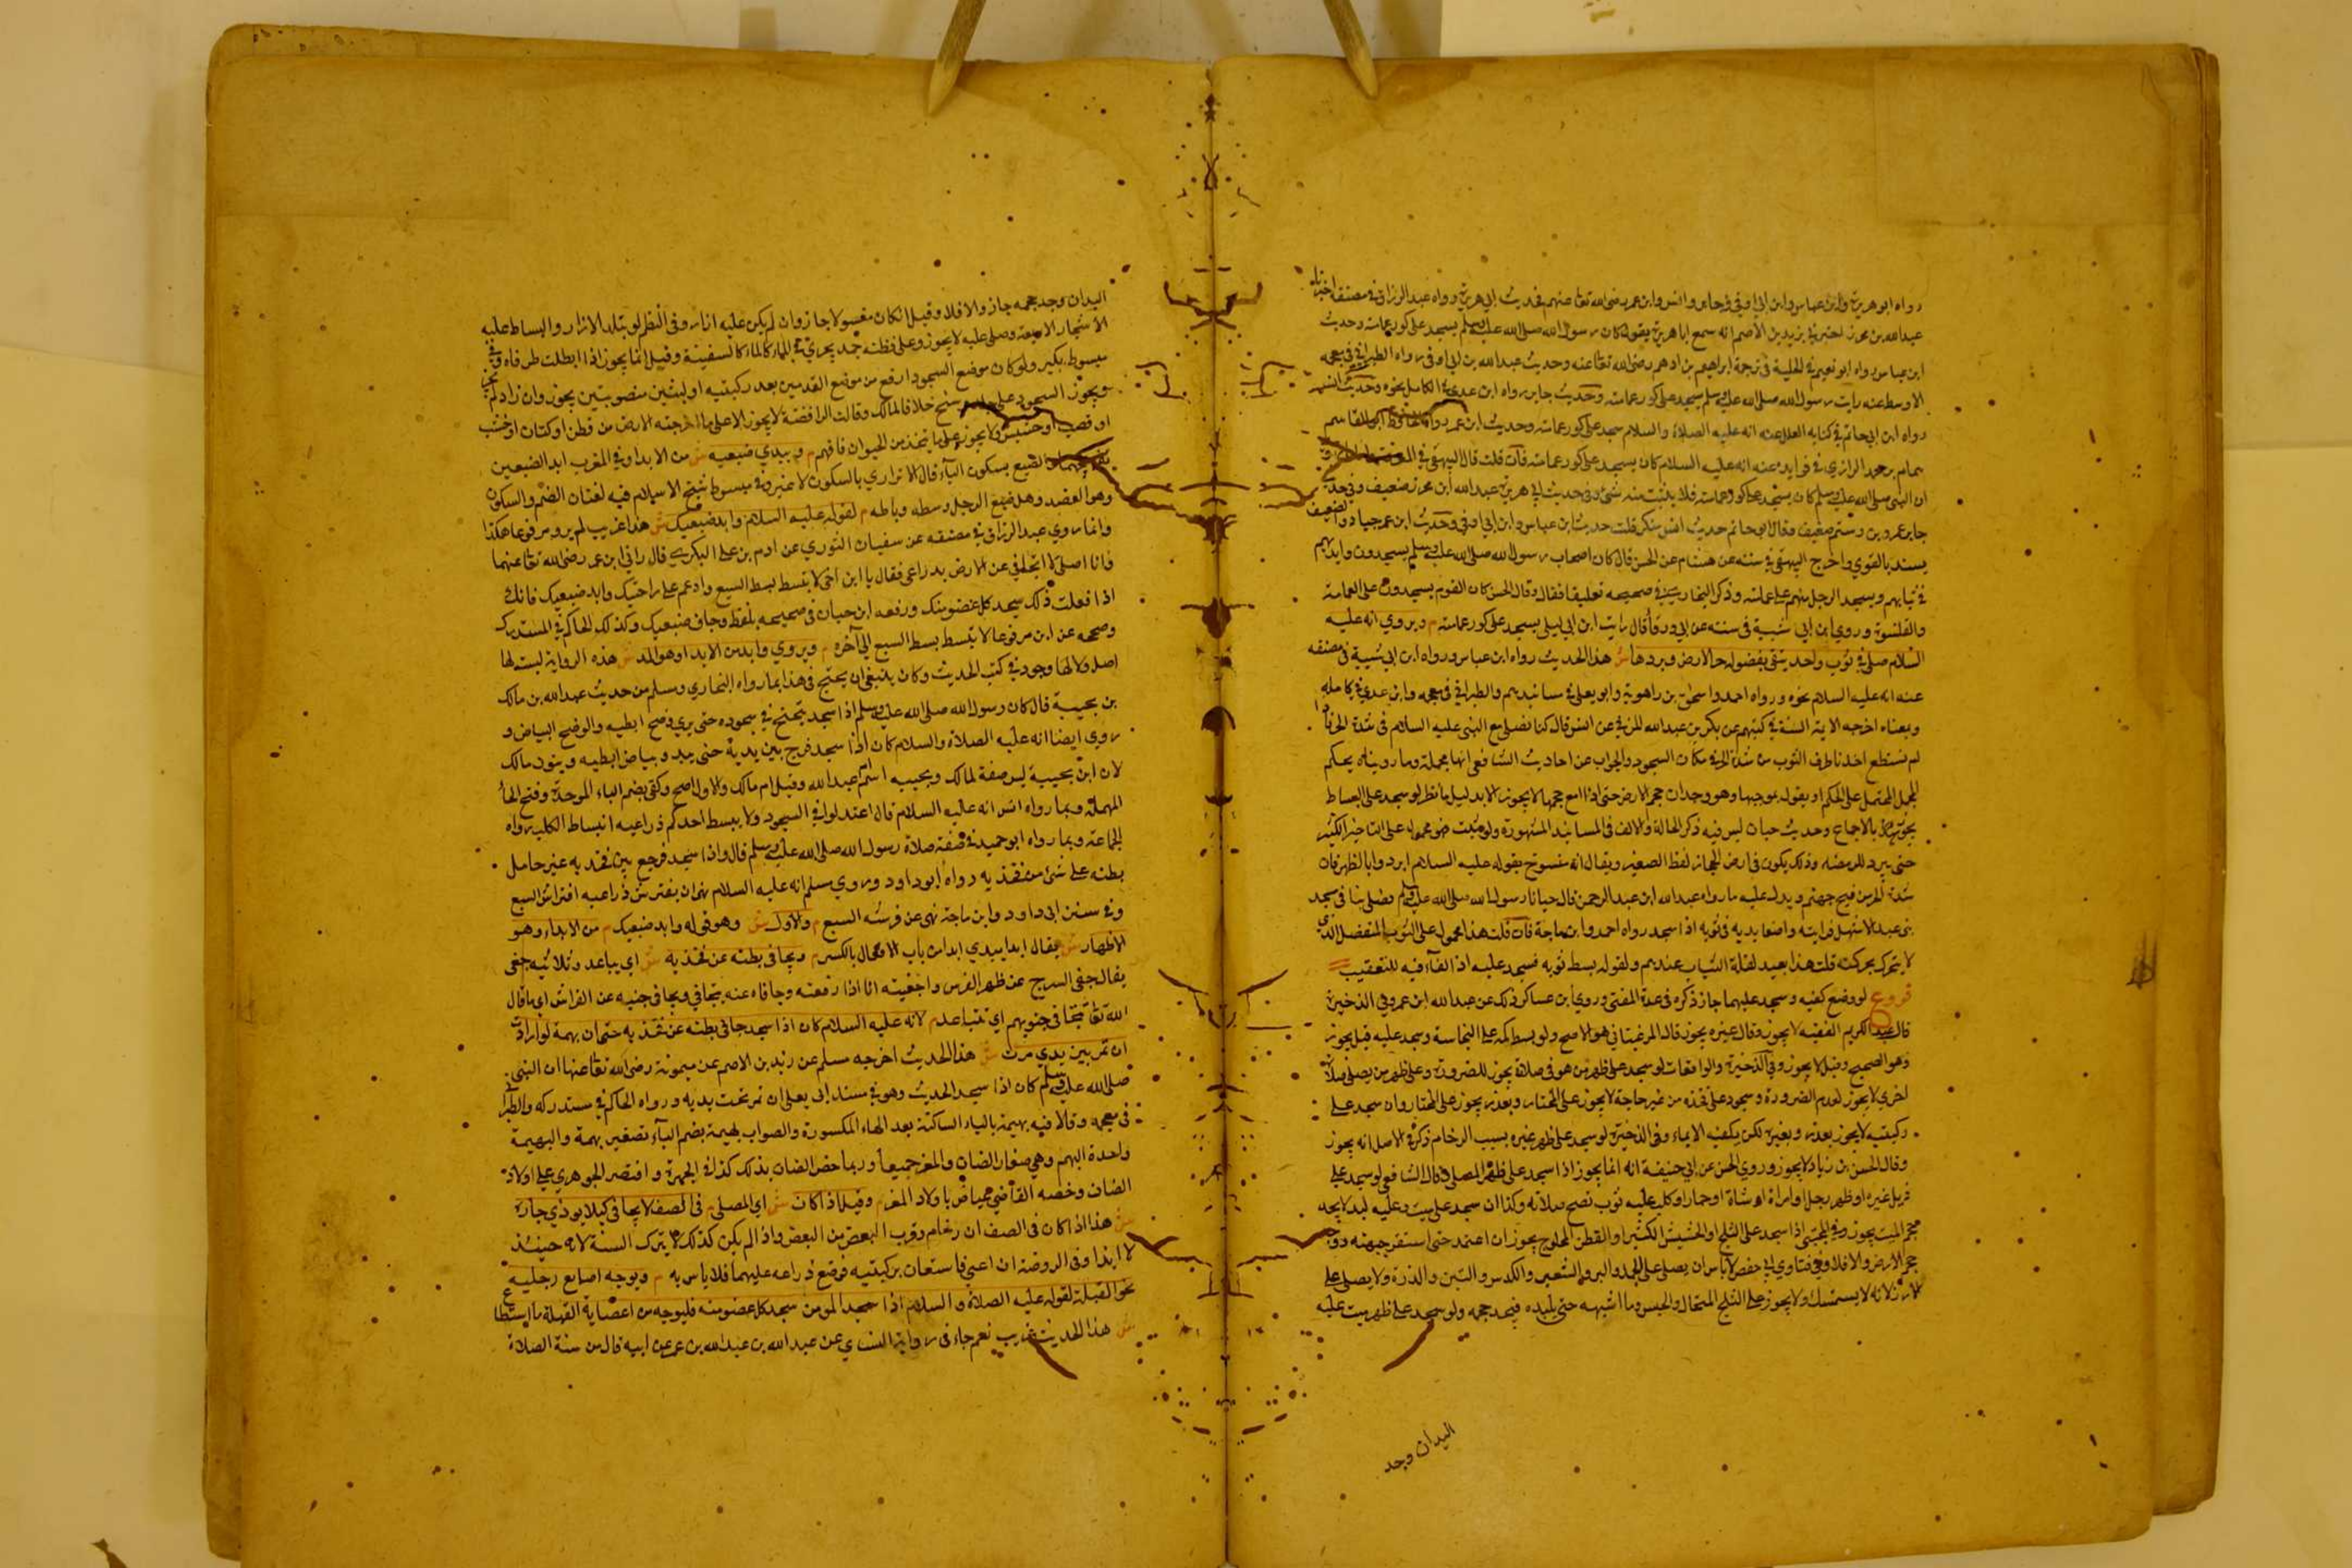 رواه ابو هريرة وابن عباس وابن ابي اوفى وجابر وانس وابن عمر رضى الله تعا عنهم فحديث ابي هريرة رواه عبد الرزاق في مصنفه اخبرنا
عبد الله بن محرر اخبرني يزيد بن الاصم انه سمع ابا هريرة يقول كان رسول الله صلى الله عليه وسلم يسجد على كور عمامته وحديث
ابن عباس رواه ابو نعيم في الحلية في ترجمة ابراهيم بن ادهم رضى الله تعا عنه وحديث عبد الله بن ابي اوفى رواه الطبراني في معجمه
الاوسط عنه رايت رسول الله صلى الله عليه وسلم يسجد على كور عمامته وحديث جابر رواه ابن عدي في الكامل نحوه وحديث انس
رواه ابن ابي حاتم في كتابه العلل عنه انه عليه الصلاة والسلام سجد على كور عمامته وحديث ابن عمر رواه الحافظ ابو القاسم
تمام بن محمد الرازي في فوايده عنه انه عليه السلام كان يسجد على كور عمامته فان قلت قال البيهقي في المعرفة
ان النبى صلى الله عليه وسلم كان يسجد على كور عمامته فلا يثبت منه شئ وفي حديث ابي هريرة عبد الله ابن محرر ضعيف وفي حديث
جابر عمرو بن شمر ضعيف وقال ابو حاتم حديث انس منكر قلت حديث ابن عباس وابن ابي اوفى وحديث ابن عمر جياد والضعيف
يسند بالقوي واخرج البيهقي في سننه عن هشام عن الحسن قال كان اصحاب رسول الله صلى الله عليه وسلم يسجدون وايديهم
في ثيابهم ويسجد الرجل منهم على عمامته وذكر البخاري في صحيحه تعليقا فقال وقال الحسن كان القوم يسجدون على العمامة
والقلنسوة وروي ابن ابي شيبة في سننه عن ابي ورقا قال رايت ابن ابي ليلى يسجد على كور عمامته م ويروي انه عليه
السلام صلى في ثوب واحد يتقى بفضوله حر الارض وبردها ش هذا الحديث رواه ابن عباس ورواه ابن ابي شيبة في مصنفه
عنه انه عليه السلام نحوه ورواه احمد واسحق بن راهوية وابو يعلى في مسانيدهم والطبراني في معجمه وابن عدي في كامله
وبمعناه اخرجه الايمة الستة في كتبهم عن بكر بن عبد الله المزني عن انس قال كنا نصلي مع النبى عليه السلام في شدة الحر فاذا
لم يستطع احدنا طرف الثوب من شدة الحر في مكان السجود والجواب عن احاديث الشافعي انها مجملة وما رويناه محكم
المجمل المحتمل على المحكم او بقوله بموجبها وهو وجدان حجر الارض حتى اذا امتنع حجمها لا يجوز الا بدليل ما نظر لو سجد على البساط
يجوز بالاجماع وحديث حباب ليس فيه ذكر الجباه والانف في المسانيد المشهورة ولو ثبت فهو محمول على التاخير الكثير
حتى يبرد للرمضه وذلك يكون في ارض الحجاز لفظ الصغير ويقال انه منسوخ بقوله عليه السلام ابردوا بالظهر فان
شدة الحر من فيح جهنم ويدل عليه ما رواه عبد الله ابن عبد الرحمن قال جيانا رسول الله صلى الله عليه وسلم فصلى بنا في مسجد
بني عبد الاشهل فرايته واضعا يديه في ثوبه اذا سجد رواه احمد وابن ماجة فان قلت هذا محمول على الثوب المنفصل الذي
لا يتحرك بحركته قلت هذا بعيد لقلة الثياب عندهم ولقوله بسط ثوبه فسجد عليه اذ الفاء فيه للتعقيب
فروع لو وضع كفيه وسجد عليهما جاز ذكره في عدة المفتي وروي ابن عساكر ذلك عن عبد الله ابن عمر وفي الذخيرة
قال عبد الكريم الفقيه لا يجوز وقال غيره يجوز قال المرغيناني هو الاصح ولو بسط كمه على النجاسة وسجد عليه قيل يجوز
وهو الصحيح وقيل لا يجوز وفي الذخيرة والواقعات لو سجد على ظهر من هو في صلاة يجوز للضرورة وعلى ظهر من يصلي صلاة
اخرى لا يجوز لعدم الضرورة وسجود على فخذه من غير حاجة لا يجوز على المختار وبعذر يجوز على المختار وان سجد على
ركبتيه لا يجوز بعذر وبغيره لكن يكفيه الايماء وفي الذخيرة لو سجد على ظهر غيره بسبب الزحام ذكر في الاصل انه يجوز
وقال الحسن بن زياد لا يجوز وروي الحسن عن ابي حنيفة انه انما يجوز اذا سجد على ظهر المصلى وقال الشافعى لو سجد على
ذيل غيره او ظهر رجل او امراة او شاة او حمار او كلب عليه ثوب تصح صلاته وكذا ان سجد على ميت وعليه لبد لا يجد
حجم الميت يجوز وفي المجتبى اذا سجد على الثلج او الحشيش الكثير او القطن المحلوج يجوز ان اعتمد حتى استقر جبهته ووجد
حجم الارض والا فلا وفي فتاوي ابي حفص لا باس ان يصلى على الجمد والبر والشعير والكدس والتبن والذرة ولا يصلى على
الارز لانه لا يستمسك ولا يجوز على الثلج المتخال والحبس وما اشبهه حتى يلبده فيجد حجمه ولو سجد على ظهر ميت عليه
البدان وجد
البدان وجد حجمه جاز والا فلا وقيل ان كان مغسولا جاز وان لم يكن عليه ازار وفي النظر لو بتله الازار والبساط عليه
الاشجار الاربعة وصلى عليه لا يجوز وعلى قطنه جمد يجري في الماء كالماء كالسفينة وقيل انما يجوز اذا ابطلت طرفاه وفي
مبسوط بكير ولو كان موضع السجود ارفع من موضع القدمين بعد ركبتيه او لبنتين منصوبتين يجوز وان زاد لم يجز
ويجوز السجود على خلافا لمالك وقالت الرافضة لا يجوز الا على ما اخرجته الارض من قطن او كتان او خشب
او قصب او حشيش ولا يجوز على ما يتخذ من الحيوان فافهم م ويبدي ضبعيه ش من الابدا وفي المغرب ابد الضبعين
تفريجهما والضبع بسكون الباء قال الاترازي بالسكون لا غير وفي مبسوط شيخ الاسلام فيه لغتان الضم والسكون
وهو العضد وهل ضبع الرجل وسطه وباطنه م لقوله عليه السلام وابد ضبعيك ش هذا غريب لم يرو مرفوعا هكذا
وانما روي عبد الرزاق في مصنفه عن سفيان الثوري عن ادم بن على البكري قال راني ابن عمر رضى الله تعا عنهما
وانا اصلى لا اتجافى عن الارض بذراعي فقال يا ابن اخى لا تبسط بسط السبع وادعم على راحتيك وابد ضبعيك فانك
اذا فعلت ذلك سجد كل عضو منك ورفعه ابن حبان في صحيحه بلفظ وجاف ضبعيك وكذلك الحاكم في المستدرك
وصححه عن ابن مرفوعا لا تبسط بسط السبع الى آخره م ويروي وابد من الابداد وهو المد ش هذه الرواية ليست لها
اصل ولا لها وجود في كتب الحديث وكان ينبغي ان يحتج في هذا بما رواه البخاري ومسلم من حديث عبد الله بن مالك
بن بحيينة قال كان رسول الله صلى الله عليه وسلم اذا سجد يجنح في سجوده حتى يري وضح ابطيه والوضح البياض و
روي ايضا انه عليه الصلاة والسلام كان اذا سجد فرج بين يديه حتى يبدو بياض ابطيه وينون مالك
لان ابن بحيينة ليس صفة لمالك وبحيينه اسم ام عبد الله وقيل ام مالك والاول اصح وكفى بضم الباء الموحدة وفتح الحاء
المهملة وبما رواه انس انه عليه السلام قال اعتدلوا في السجود ولا يبسط احدكم ذراعيه انبساط الكلب رواه
الجماعة وبما رواه ابو حميد في صفة صلاة رسول الله صلى الله عليه وسلم قال واذا سجد فرج بين فخذيه غير حامل
بطنه على شئ من فخذيه رواه ابو داود وروي مسلم انه عليه السلام نهى ان يفترش ذراعيه افتراش السبع
وفي سنن ابي داود وابن ماجة نهى عن فرشة السبع م والاول ش وهو قوله وابد ضبعيك م من الابداء وهو
الاظهار ش يقال ابدا يبدي ابدا من باب الافعال بالكسر م ويجافى بطنه عن فخذيه ش اي يباعد وثلاثيه جفى
يقال جفى السرج عن ظهر الفرس واجفيته انا اذا رفعته وجافاه عنه يتجافى ويجافى جنبه عن الفراش اي ما قال
الله تعا تتجافى جنوبهم اي تتباعد م لانه عليه السلام كان اذا سجد جافى بطنه عن فخذيه حتى ان بهمة لو ارادت
ان تمر بين يديه مرت ش هذا الحديث اخرجه مسلم عن يزيد بن الاصم عن ميمونة رضى الله تعا عنها ان النبى
صلى الله عليه وسلم كان اذا سجد الحديث وهو في مسند ابي يعلى ان تمر تحت يديه ورواه الحاكم في مستدركه والطبراني
في معجمه وقالا فيه بهيمة بالياء الساكنة بعد الهاء المكسورة والصواب بهيمة بضم الباء تصغير بهمة والبهيمة
واحدة البهم وهي صغار الضان والمعز جميعا وربما خص الضان بذلك كذا في الجمهرة واقتصر الجوهري على اولاد
الضان وخصه القاضي عياض باولاد المعز م وقيل اذا كان ش اي المصلي م في الصف لا يجافى كيلا يوذي جاره
ش هذا اذا كان في الصف ازدحام وقرب البعض من البعض واذا لم يكن كذلك لا يترك السنة لانه حينئذ
لا ايذا وفي الروضة ان اعيى فاستعان بركبتيه فوضع ذراعه عليهما فلا باس به م ويوجه اصابع رجليه
نحو القبلة لقوله عليه الصلاة والسلام اذا سجد المومن سجد كل عضو منه فليوجه من اعضايه القبلة ما استطاع
ش هذا الحديث غريب نعم جاء في رواية النساي عن عبد الله بن عبد الله بن عمر عن ابيه قال من سنة الصلاة